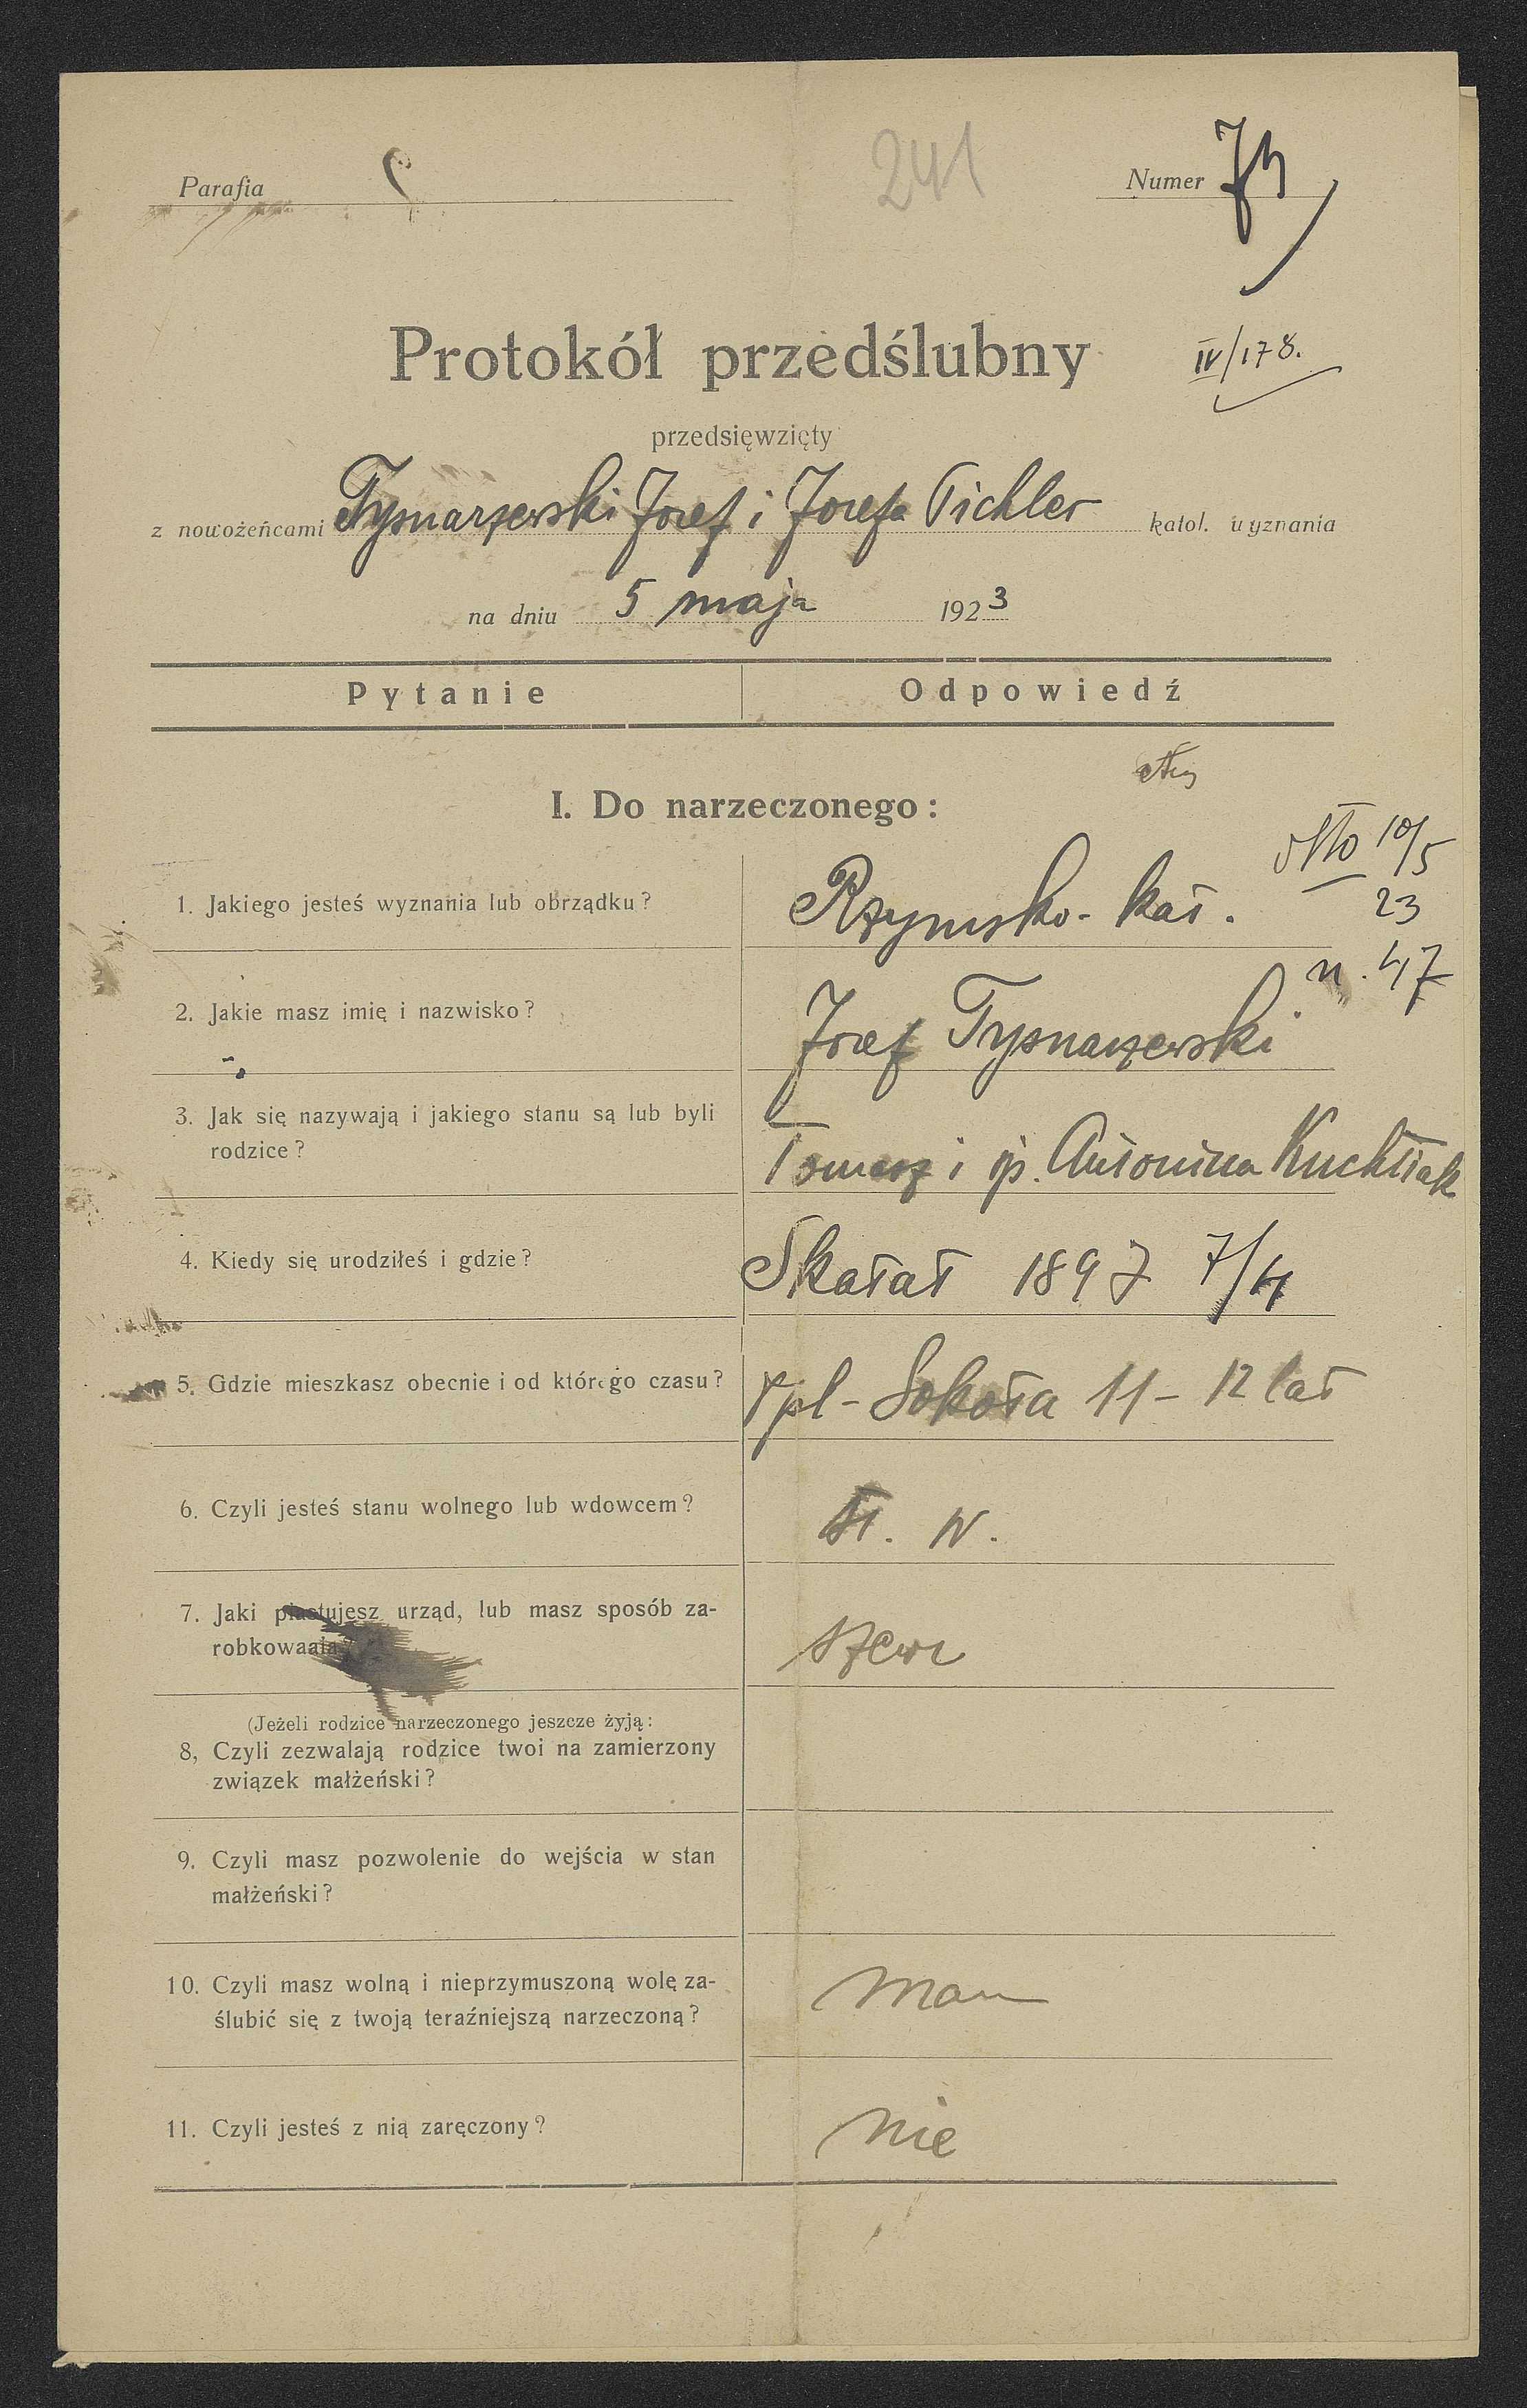 Parafia
241
Numer 74
Protokół przedślubny
IV/178.
przedsięwzięty
z nowożeńcami Tysnarzewski Józef i Józefa Pichler katol. wyznania
na dniu 5 maja 1923
Pytanie Odpowiedź
I. Do narzeczonego:
10/5
23
n. 47
1. Jakiego jesteś wyznania lub obrządku? Rzymsko-kat.
2. Jakie masz imię i nazwisko? Józef Tysnarzewski
3. Jak się nazywają i jakiego stanu są lub byli
rodzice? Tomasz i śp. Antonina Kuchtiak
4. Kiedy się urodziłeś i gdzie? Skałat 1897 7/4
5. Gdzie mieszkasz obecnie i od którego czasu? Tpl - Sokoła 11 - 12 lat
6. Czyli jesteś stanu wolnego lub wdowcem? st. w.
7. Jaki piastujesz urząd, lub masz sposób za-
robkowaaia? szewc
(Jeżeli rodzice narzeczonego jeszcze żyją:
8, Czyli zezwalają rodzice twoi na zamierzony
związek małżeński?
9. Czyli masz pozwolenie do wejścia w stan
małżeński?
10. Czyli masz wolną i nieprzymuszoną wolę za-
ślubić się z twoją teraźniejszą narzeczoną? mam
11. Czyli jesteś z nią zaręczony? nie